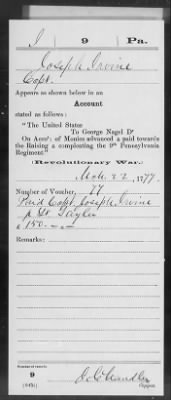 I 9 Pa.
Joseph Irvine
Capt.
Appears as shown below in an
Account
stated as follows:
"The United States
To George Nagel Dr
On Accot: of Monies advanced a paid towards
the Raising a compleating the 9th Pennsylvania
Regiment"
(Revolutionary War.)
Mch. 22, 1777.
Number of Voucher, 77
Paid Capt. Joseph Irvine
p Lt. Taylor
150. - -
Remarks:
Number of record:
9
(645i) Copyist.